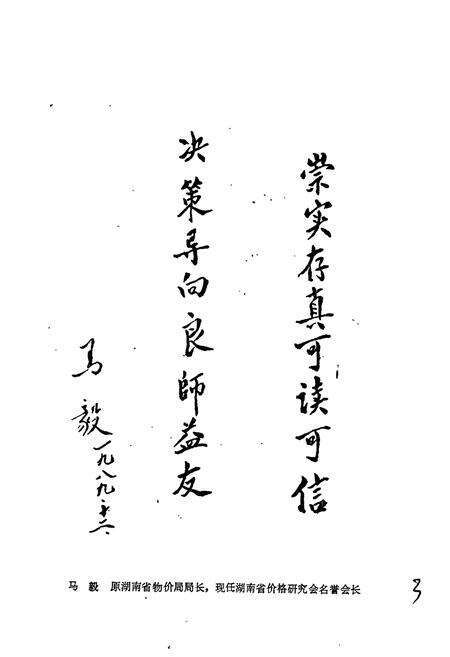 崇实存真可读可信
决策导向良師益友
马毅
一九八九.十二.
马 毅 原湖南省物价局局长，现任湖南省价格研究会名誉会长
3